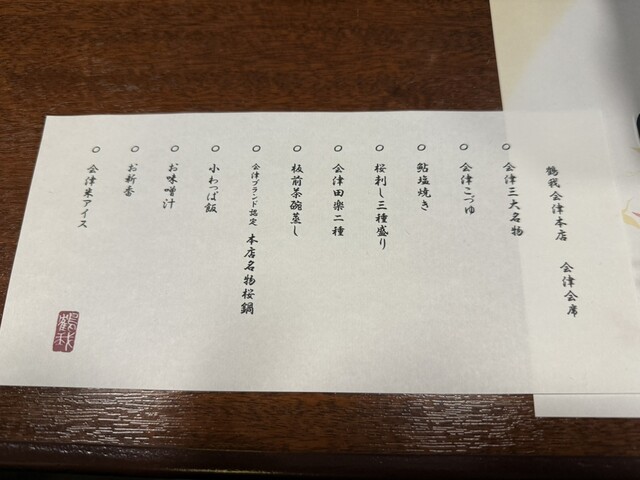 鶴我会津本店 会津会席
○ 会津三大名物
○ 会津こづゆ
○ 鮎塩焼き
○ 桜刺し三種盛り
○ 会津田楽二種
○ 板前茶碗蒸し
○ 会津ブランド認定 本店名物桜鍋
○ 小わっぱ飯
○ お味噌汁
○ お新香
○ 会津米アイス
鶴我